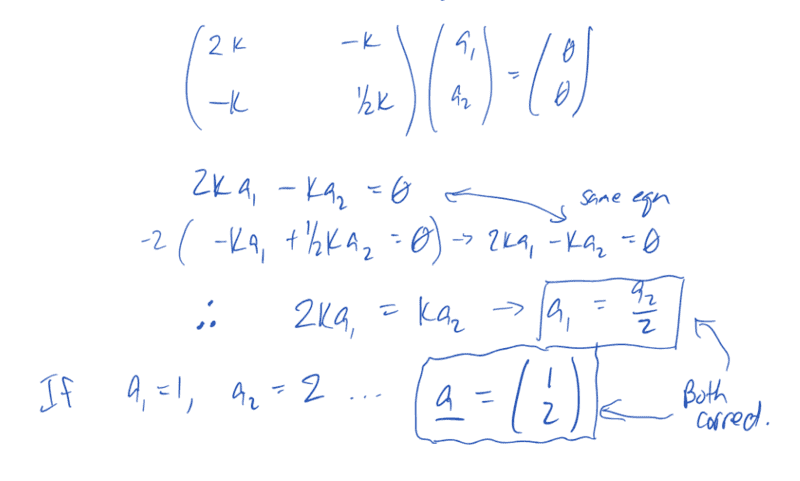 (2k -k) (a₁) = (0)
(-k ½k) (a₂) (0)
2ka₁ - ka₂ = 0
same eqn
-2(-ka₁ + ½ka₂ = 0) → 2ka₁ - ka₂ = 0
∴ 2ka₁ = ka₂ → a₁ = a₂/2
If a₁=1, a₂ = 2 ... a = (1 2)
Both
correct.